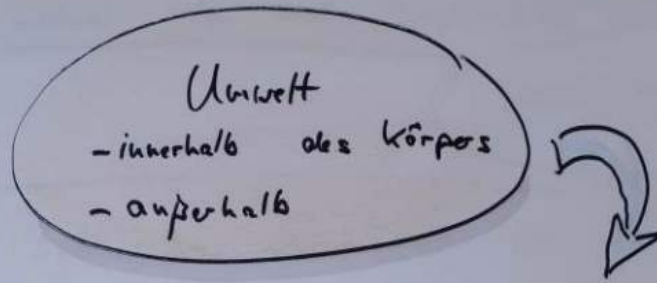 Umwelt
- innerhalb des Körpers
- außerhalb